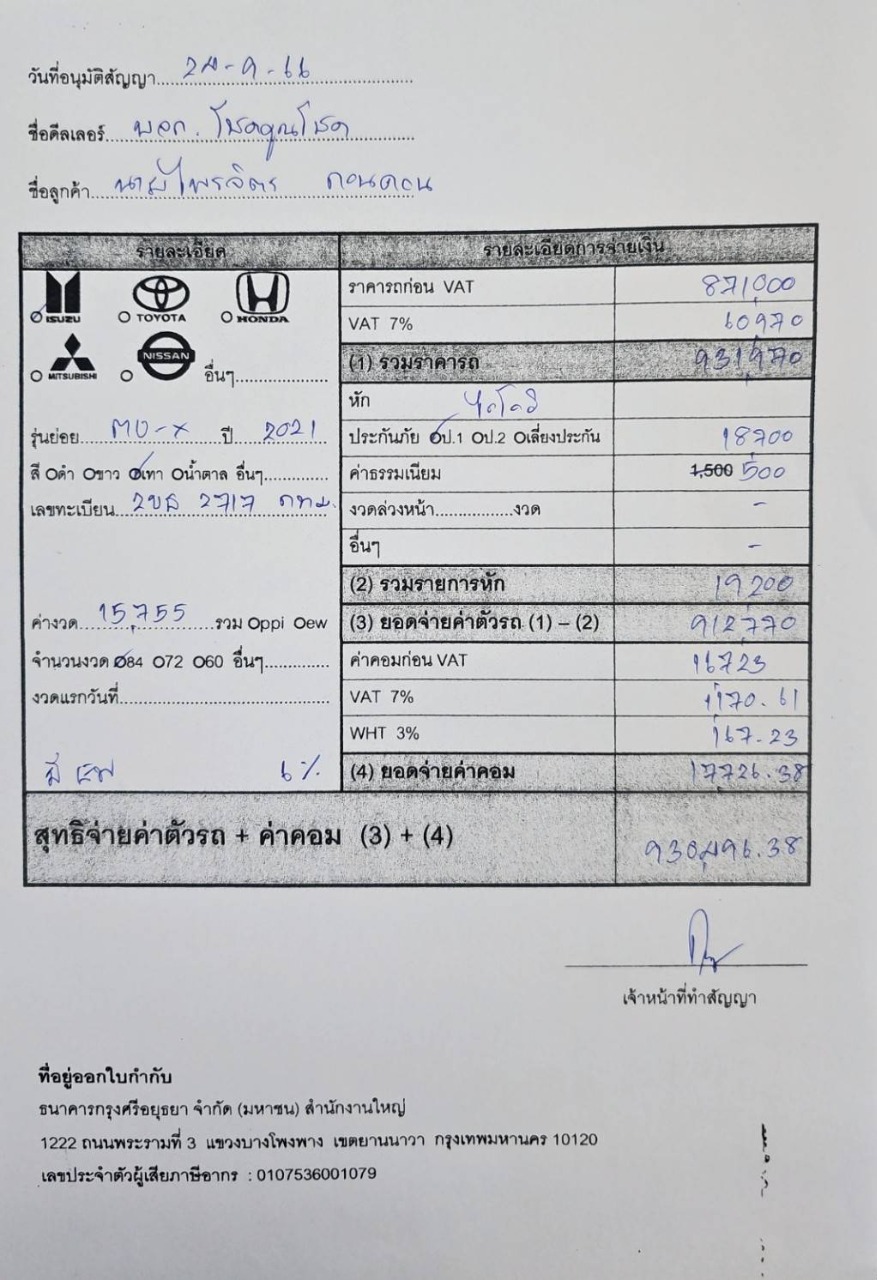 วันที่อนุมัติสัญญา 28-9-66
ชื่อดีลเลอร์ บจก. โชคคูณโชค
ชื่อลูกค้า นายไพรจิตร
รายละเอียด
ISUZU TOYOTA HONDA
MITSUBISHI NISSAN อื่นๆ
รุ่นย่อย MU-X ปี 2021
สี ดำ ขาว เทา น้ำตาล อื่นๆ
เลขทะเบียน 2ขธ 2717 กทม.
ค่างวด 15,755 รวม ppi ew
จำนวนงวด 84 72 60 อื่นๆ
งวดแรกวันที่
6%
รายละเอียดการจ่ายเงิน
ราคารถก่อน VAT 871,000
VAT 7% 60970
(1) รวมราคารถ 931,970
หัก
ประกันภัย ป.1 ป.2 เลี่ยงประกัน 18700
ค่าธรรมเนียม 1,500 500
งวดล่วงหน้า.................งวด -
อื่นๆ -
(2) รวมรายการหัก 19,200
(3) ยอดจ่ายค่าตัวรถ (1) – (2) 912,770
ค่าคอมก่อน VAT 16723
VAT 7% 1,170.61
WHT 3% 167.23
(4) ยอดจ่ายค่าคอม 17,726.38
สุทธิจ่ายค่าตัวรถ + ค่าคอม (3) + (4) 930,496.38
เจ้าหน้าที่ทำสัญญา
ที่อยู่ออกใบกำกับ
ธนาคารกรุงศรีอยุธยา จำกัด (มหาชน) สำนักงานใหญ่
1222 ถนนพระรามที่ 3 แขวงบางโพงพาง เขตยานนาวา กรุงเทพมหานคร 10120
เลขประจำตัวผู้เสียภาษีอากร : 0107536001079